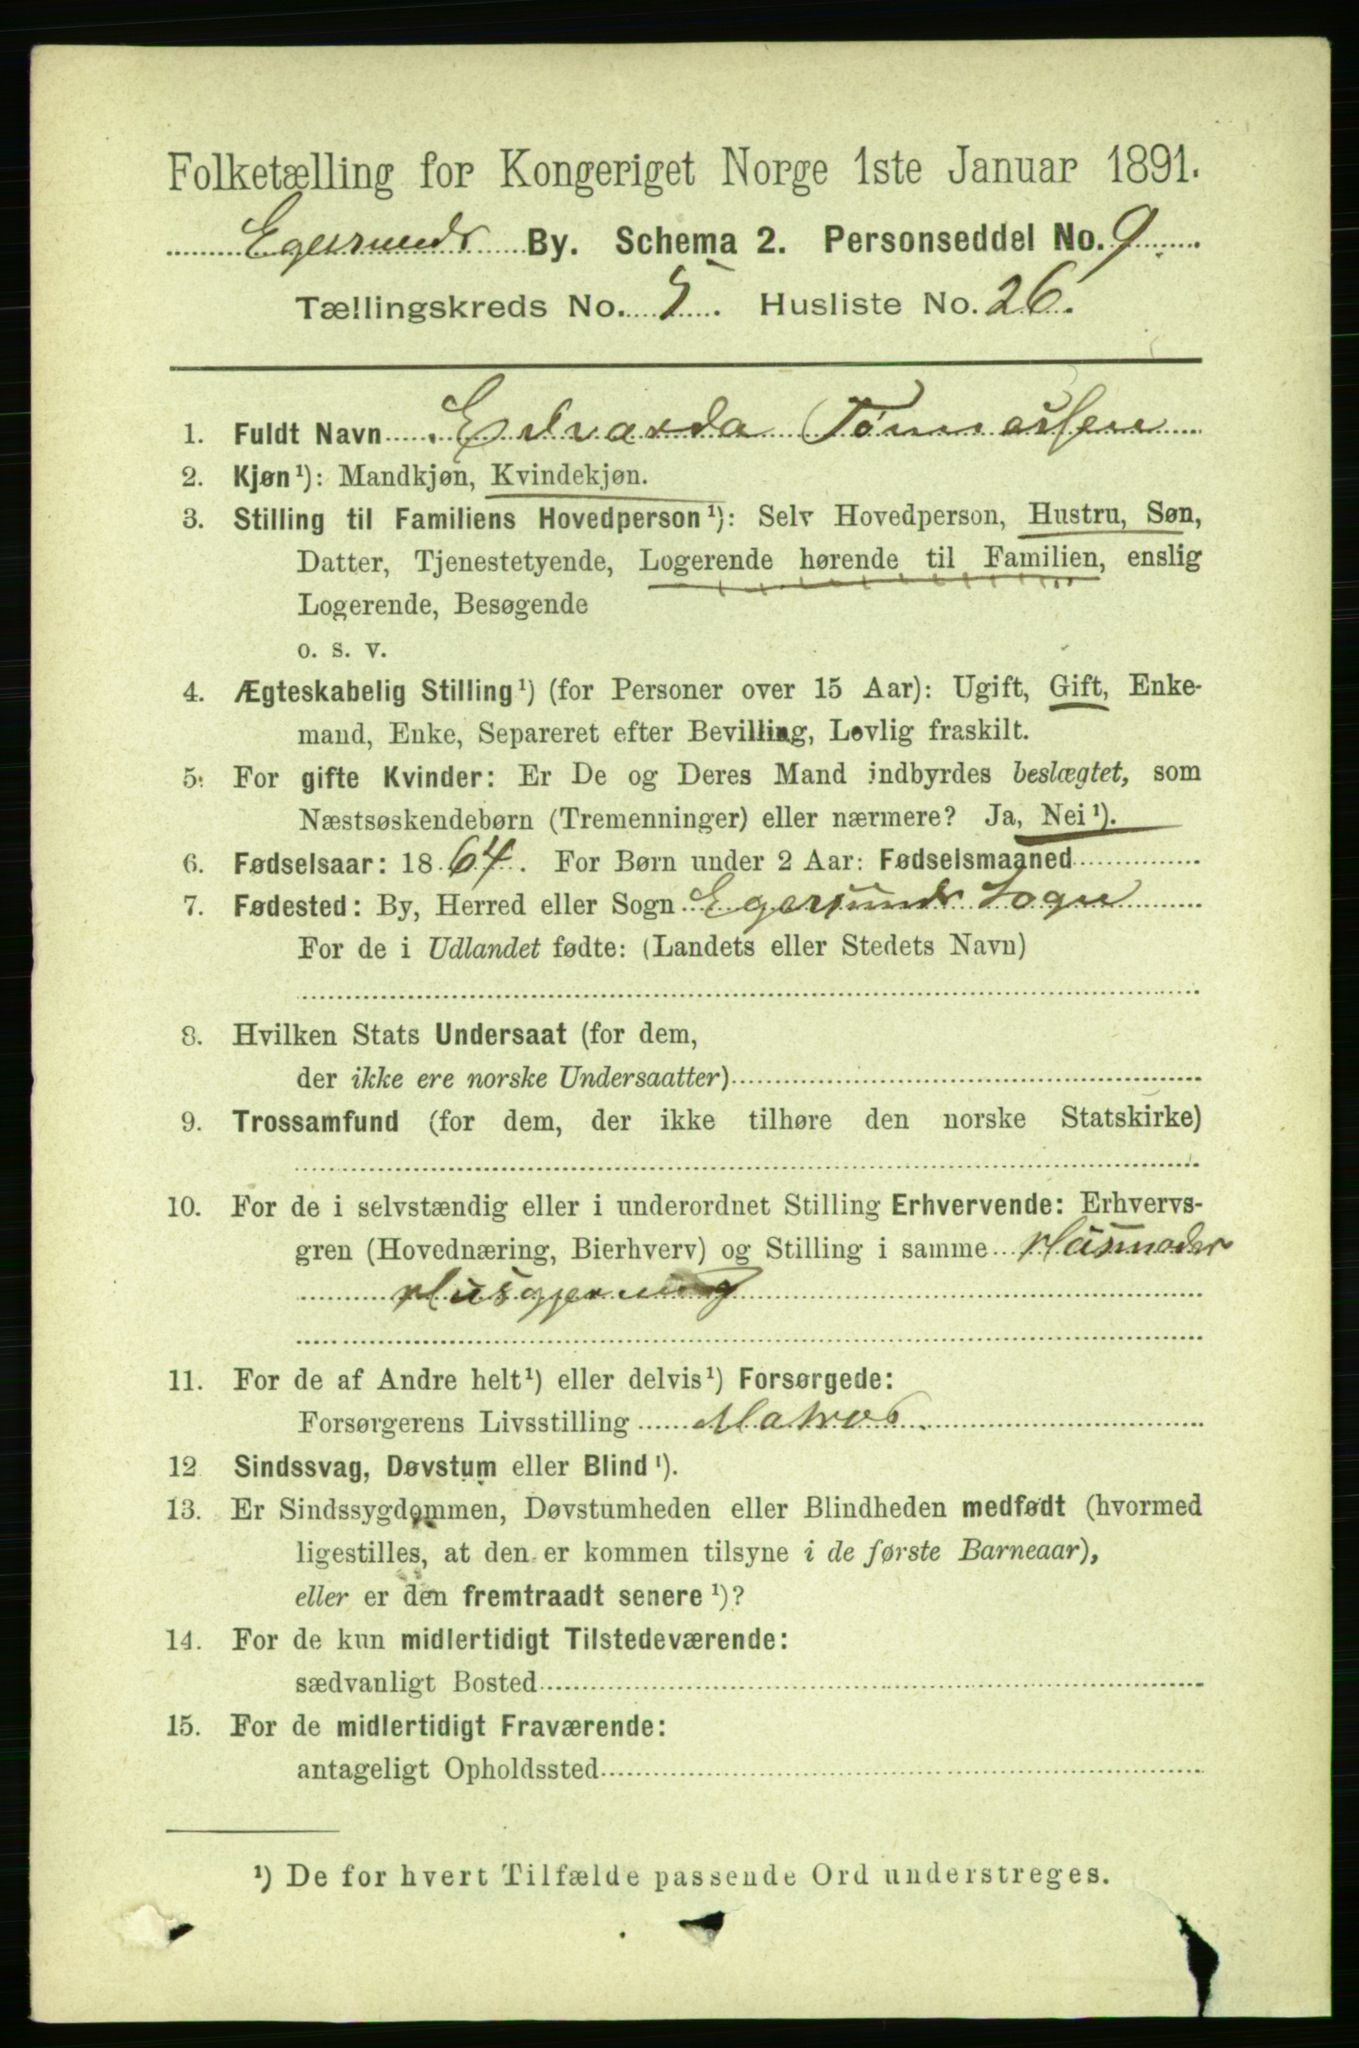 Folketælling for Kongeriget Norge 1ste Januar 1891.
Egersunds By. Schema 2. Personseddel No. 9
Tællingskreds No. 5. Husliste No. 26.
1. Fuldt Navn Edvarda Tönnessen
2. Kjøn¹): Mandkjøn, Kvindekjøn.
3. Stilling til Familiens Hovedperson¹): Selv Hovedperson, Hustru, Søn,
Datter, Tjenestetyende, Logerende hørende til Familien, enslig
Logerende, Besøgende
o. s. v.
4. Ægteskabelig Stilling¹) (for Personer over 15 Aar): Ugift, Gift, Enke-
mand, Enke, Separeret efter Bevilling, Lovlig fraskilt.
5. For gifte Kvinder: Er De og Deres Mand indbyrdes beslægtet, som
Næstsøskendebørn (Tremenninger) eller nærmere? Ja, Nei¹).
6. Fødselsaar: 1864. For Børn under 2 Aar: Fødselsmaaned
7. Fødested: By, Herred eller Sogn Egersunds Sogn
For de i Udlandet fødte: (Landets eller Stedets Navn)
8. Hvilken Stats Undersaat (for dem,
der ikke ere norske Undersaatter)
9. Trossamfund (for dem, der ikke tilhøre den norske Statskirke)
10. For de i selvstændig eller i underordnet Stilling Erhvervende: Erhvervs-
gren (Hovednæring, Bierhverv) og Stilling i samme Husmoder
Husgjerning
11. For de af Andre helt¹) eller delvis¹) Forsørgede:
Forsørgerens Livsstilling Matros.
12 Sindssvag, Døvstum eller Blind¹).
13. Er Sindssygdommen, Døvstumheden eller Blindheden medfødt (hvormed
ligestilles, at den er kommen tilsyne i de første Barneaar),
eller er den fremtraadt senere¹)?
14. For de kun midlertidigt Tilstedeværende:
sædvanligt Bosted
15. For de midlertidigt Fraværende:
antageligt Opholdssted
¹) De for hvert Tilfælde passende Ord understreges.